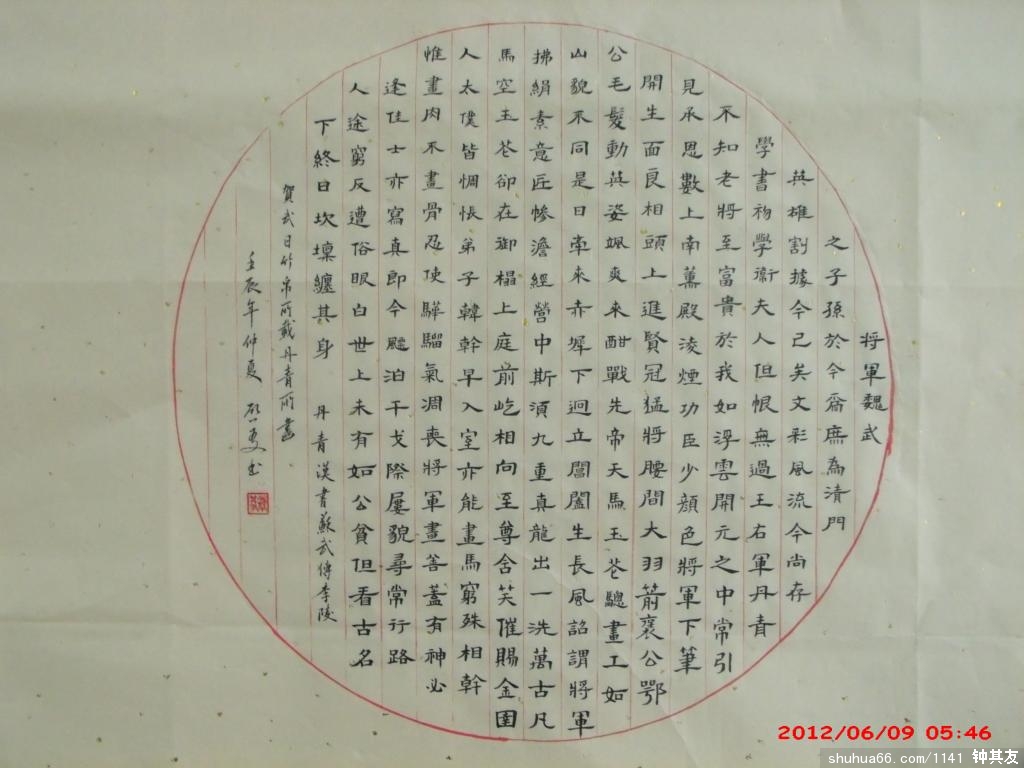 将軍魏武
之子孫於今爲庶為清門
英雄割據今已矣文彩風流今尚存
學書初學衛夫人但恨無過王右軍丹青
不知老將至富貴於我如浮雲開元之中常引
見承恩數上南薰殿淩煙功臣少顔色將軍下筆
開生面良相頭上進賢冠猛將腰間大羽箭褒公鄂
公毛髮動英姿颯爽来酣戰先帝天馬玉花驄畫工如
山貌不同是日牽来赤墀下迥立閶闔生長風詔謂將軍
拂絹素意匠慘澹經營中斯須九重真龍出一洗萬古凡
馬空玉花卻在御榻上庭前屹相向至尊含笑催賜金圉
人太僕皆惆悵弟子韓幹早入室亦能畫馬窮殊相幹
惟畫肉不畫骨忍使驊騮氣凋喪將軍畫善蓋有神必
逢佳士亦寫真即今飄泊干戈際屢貌尋常行路
人途窮反遭俗眼白世上未有如公貧但看古名
下終日坎壈纏其身 丹青漢書蘇武傳李陵
賀武日竹帛所載丹青所畫
壬辰年仲夏
2012/06/09 05:46
shuhua66.com/1141 钟其友